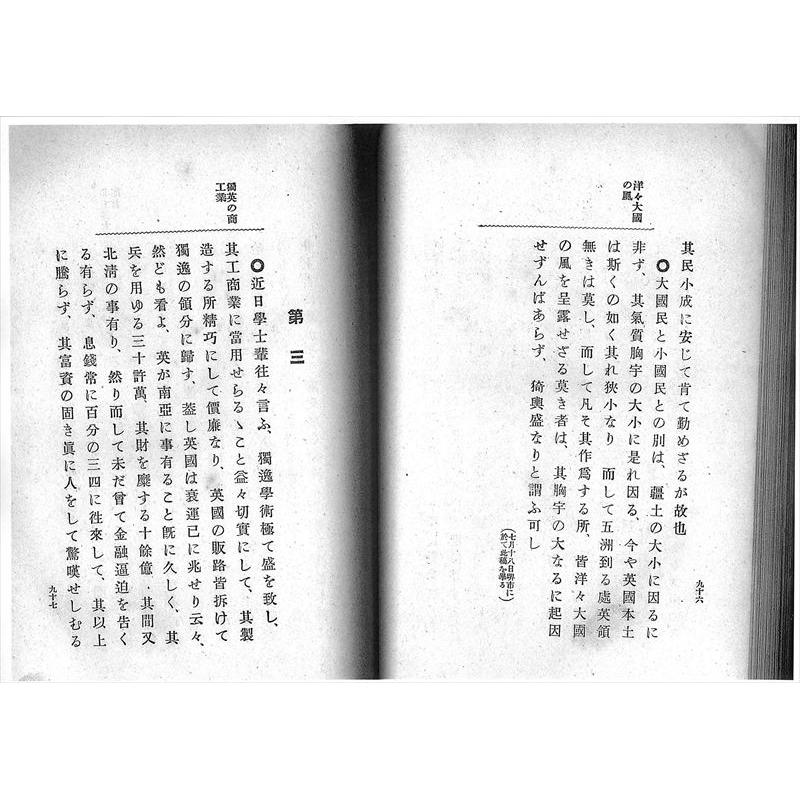 洋々大國
の風
其民小成に安じて肯て勤めざるが故也
◎大國民と小國民との別は、疆土の大小に因るに
非ず、其氣質胸宇の大小に是れ因る、今や英國本土
は斯くの如く其れ狹小なり 而して五洲到る處英領
無きは莫し、而して凡そ其作爲する所、皆洋々大國
の風を呈露せざる莫き者は、其胸宇の大なるに起因
せずんばあらず、猗輿盛なりと謂ふ可し
(七月十八日堺市に
於て此稿を學る)
九十六
獨英の商
工業
第三
◎近日學士輩往々言ふ、獨逸學術極て盛を致し、
其工商業に當用せらるゝこと益々切實にして、其製
造する所精巧にして價廉なり、英國の販路皆拆けて
獨逸の領分に歸す、葢し英國は衰運已に兆せり云々、
然ども看よ、英が南亞に事有ること旣に久しく、其
兵を用ゆる三十許萬、其財を糜する十餘億、其間又
北淸の事有り、然り而して未だ曾て金融逼迫を告く
る有らず、息錢常に百分の三四に徃來して、其以上
に騰らず、其富資の固き眞に人をして驚嘆せしむる
九十七